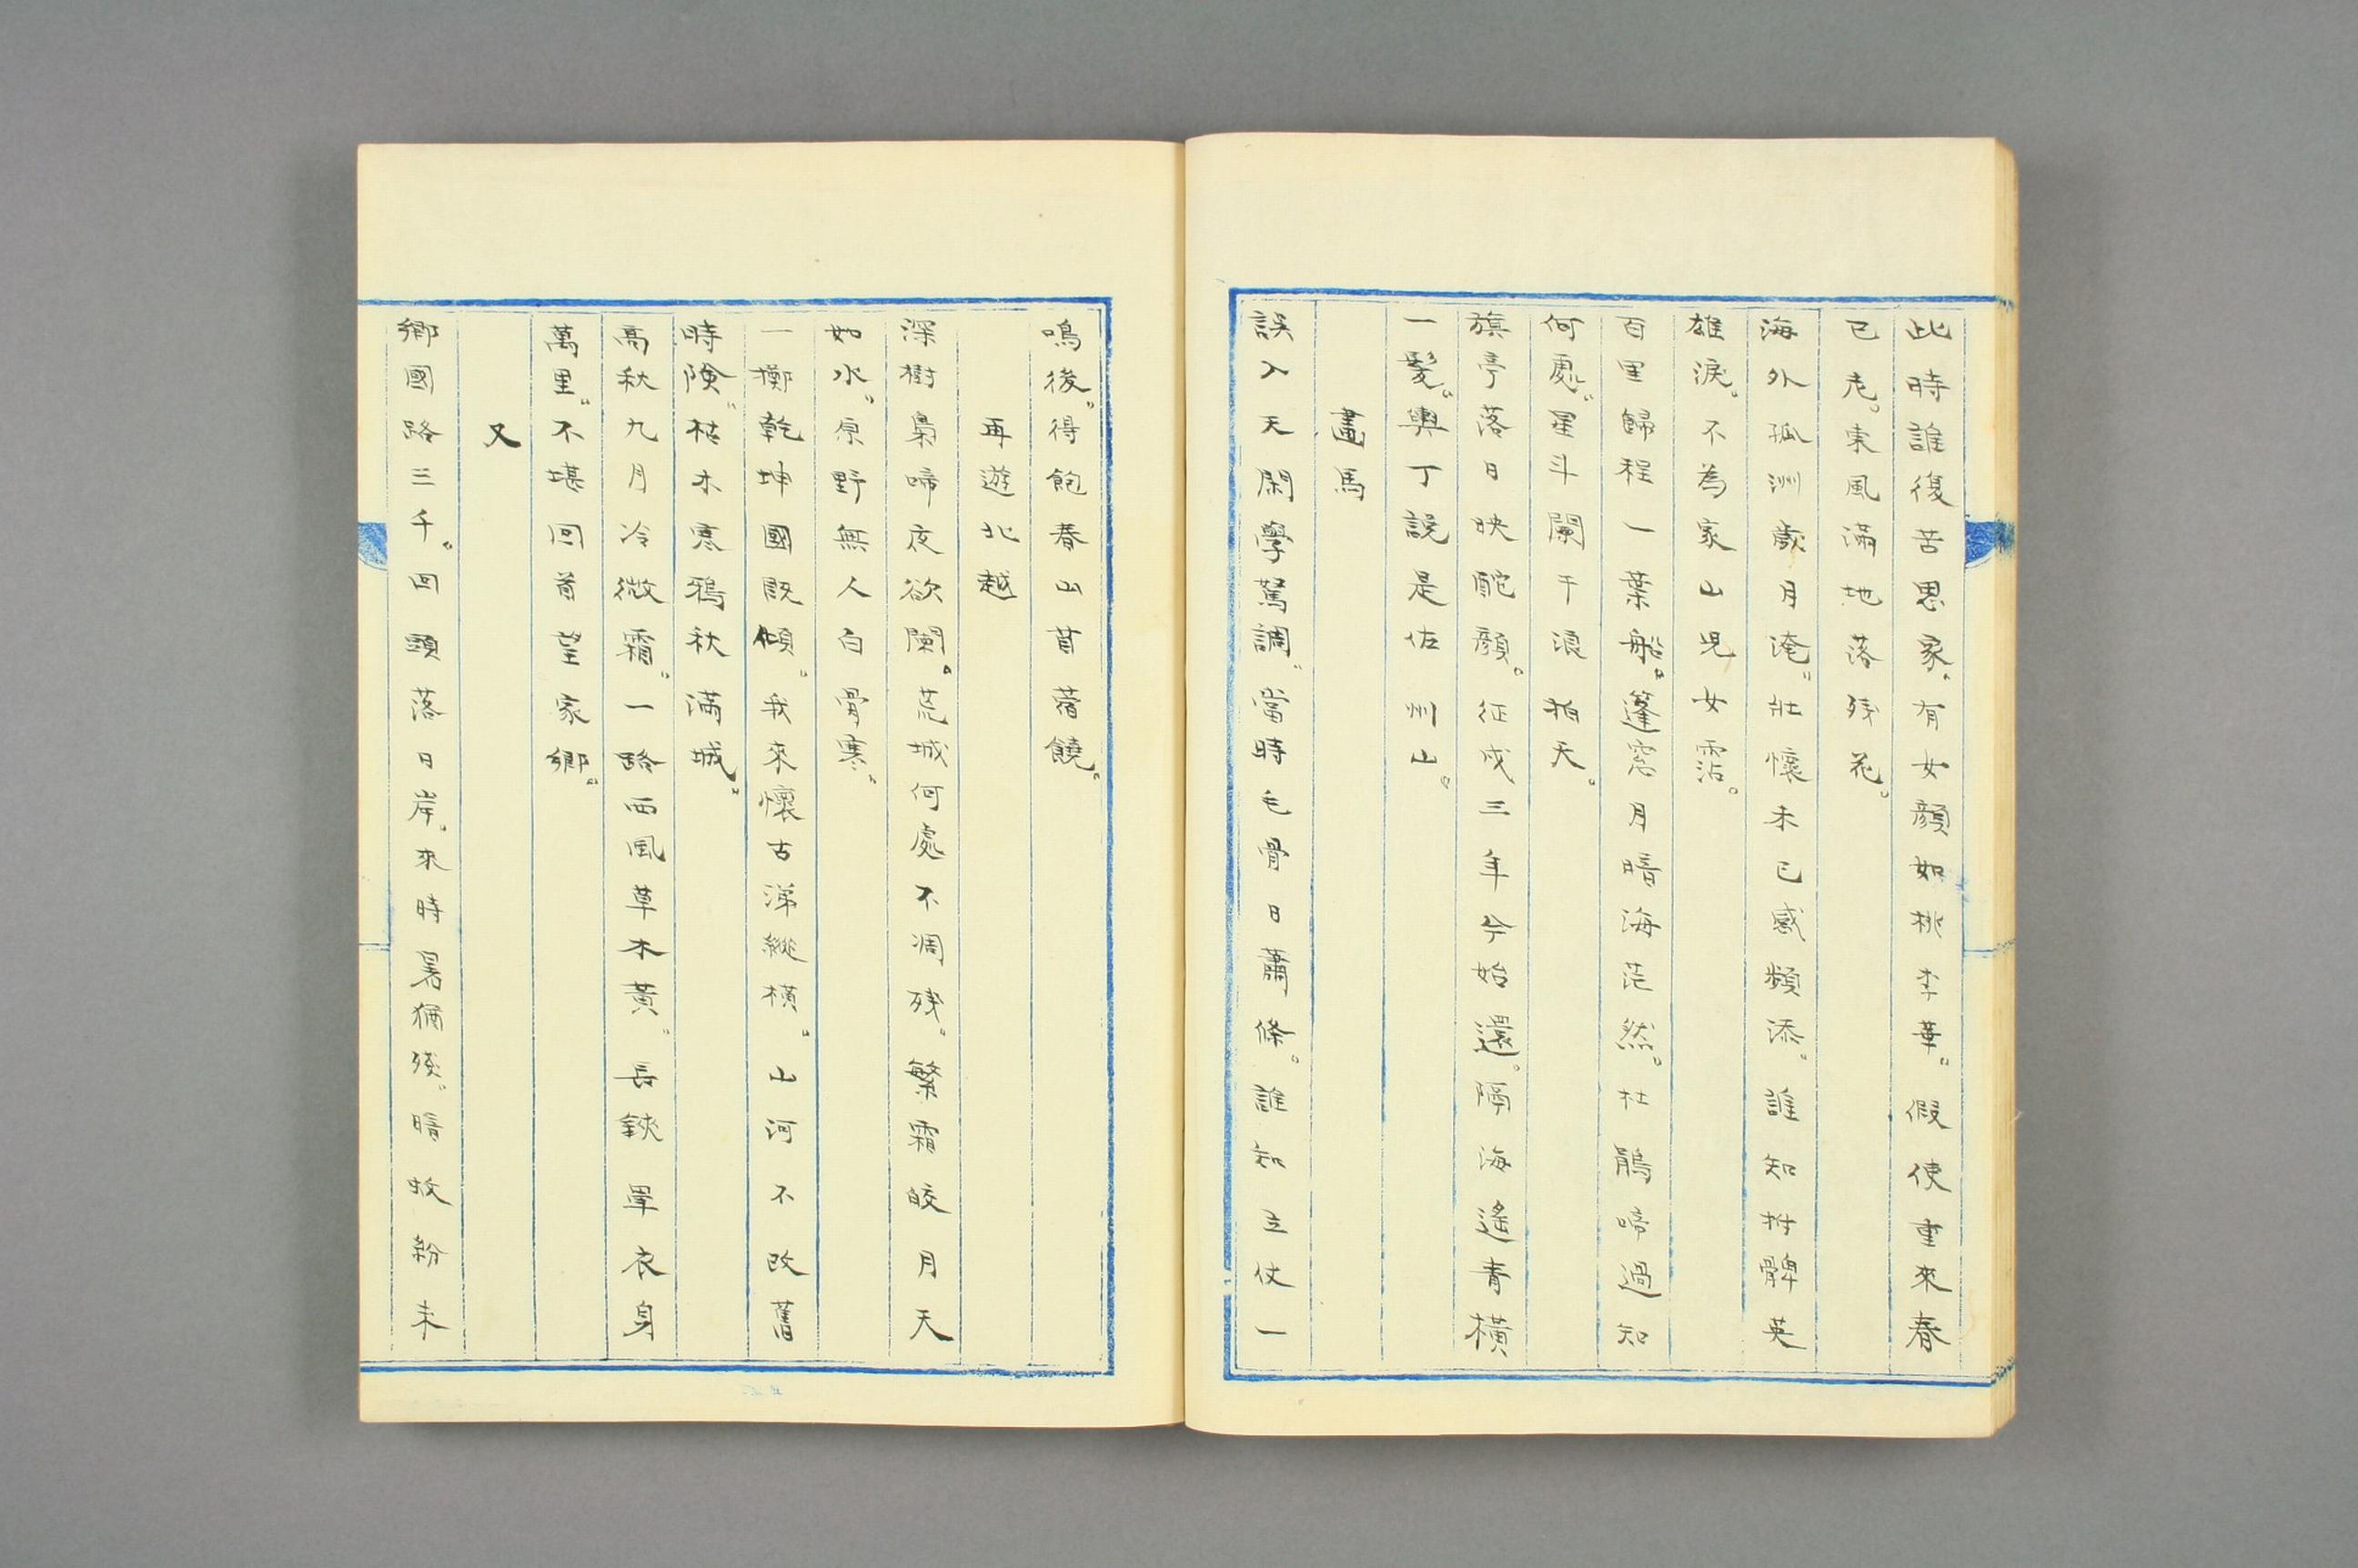 此時誰復苦思家。有女顏如桃李華。假使重來春
已老。東風滿地落残花。
海外孤洲歲月淹。壯懷未已感頻添。誰知拊髀英
雄淚。不為家山兒女霑。
百里歸程一葉船。篷窓月暗海茫然。杜鵑啼過知
何處。星斗闌干浪拍天。
旗亭落日映酡顏。征戍三年今始還。隔海遙青橫
一髮。輿丁說是佐州山。
畫馬
誤入天閑學駕調。當時毛骨日蕭條。誰知立仗一
鳴後。得飽春山苜蓿饒。
再遊北越
深樹梟啼夜欲闌。荒城何處不凋残。繁霜皎月天
如水。原野無人白骨寒。
一擲乾坤國既傾。我來懷古涕縱橫。山河不改舊
時險。枯木寒鴉秋滿城。
高秋九月冷微霜。一路西風草木黃。長鋏單衣身
萬里。不堪回首望家鄉。
又
鄉國路三千。回頭落日岸。來時暑猶殘。暗蚊紛未